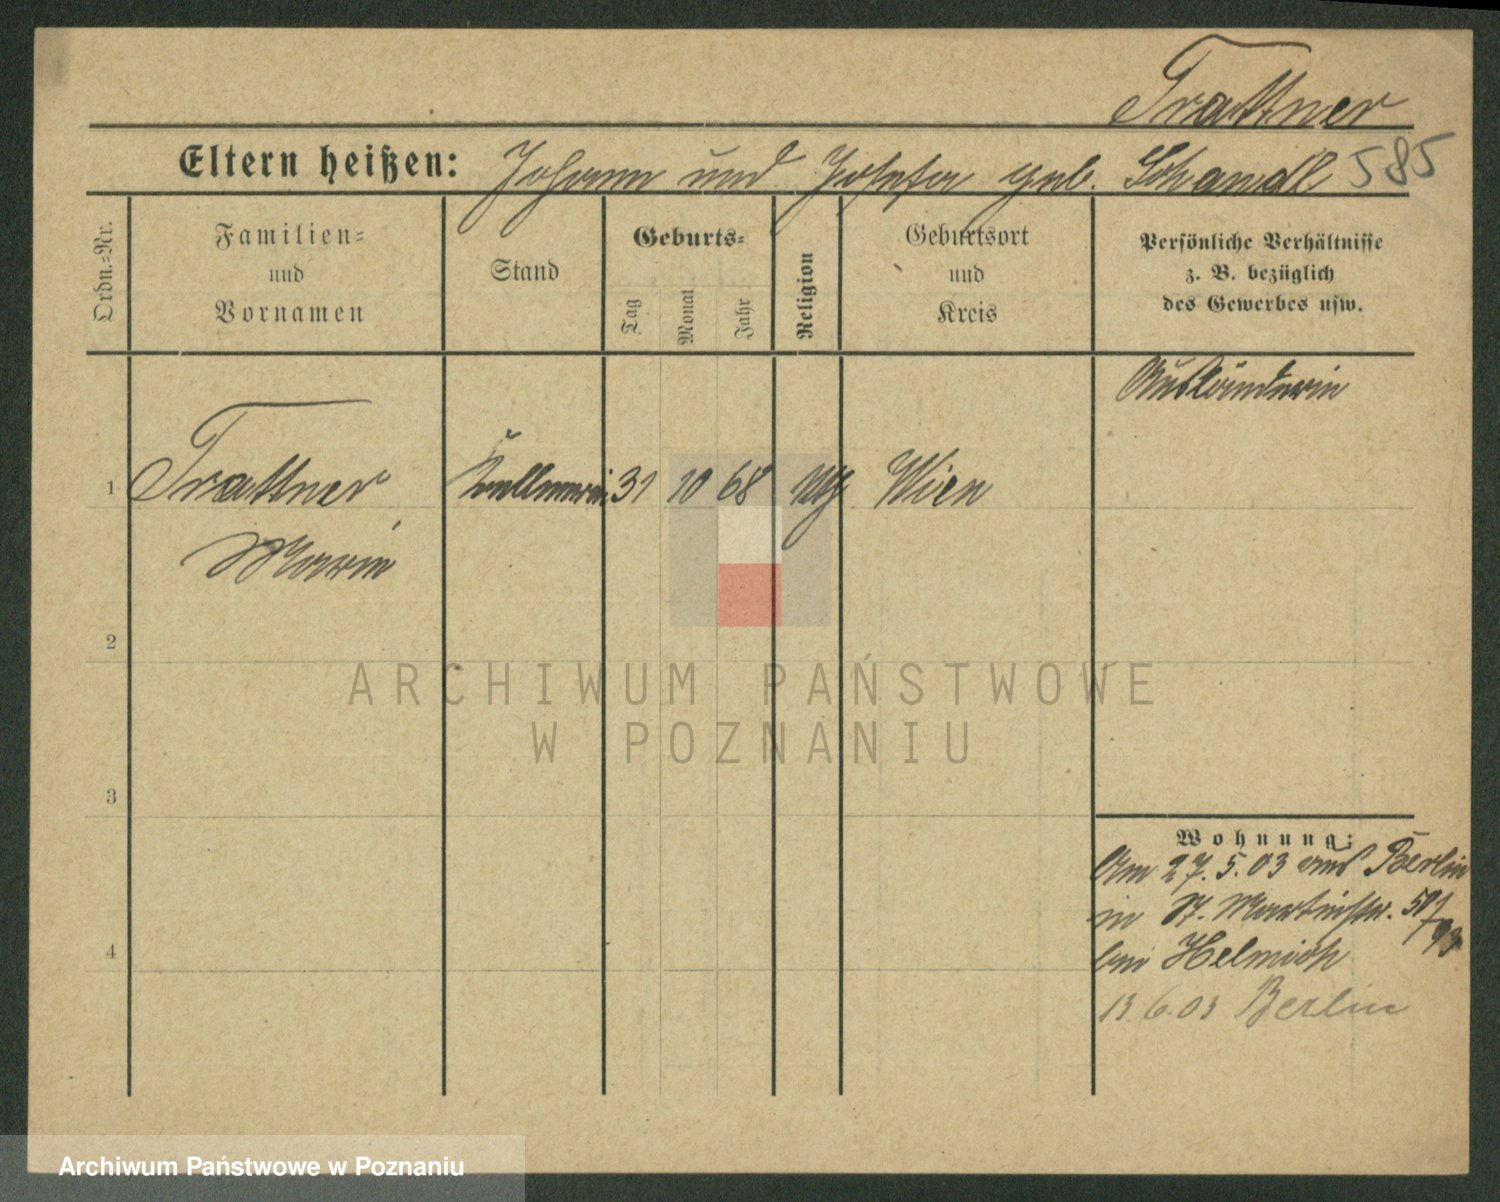 Trattner
Eltern heißen: Johann und Josefa geb. Schandl 585
Ordn.-Nr.
Familien-
und
Vornamen
Stand
Geburts-
Tag
Monat
Jahr
Religion
Geburtsort
und
Kreis
Persönliche Verhältnisse
z. B. bezüglich
des Gewerbes usw.
Ausländerin
1 Trattner Kellnerin 31 10 68 Wien
Marie
2
3
4
Wohnung:
Am 27.5.03 aus Berlin
in St. Martinstr. 50/
bei Helmich
13.6.03 Berlin
ARCHIWUM PAŃSTWOWE
W POZNANIU
Archiwum Państwowe w Poznaniu